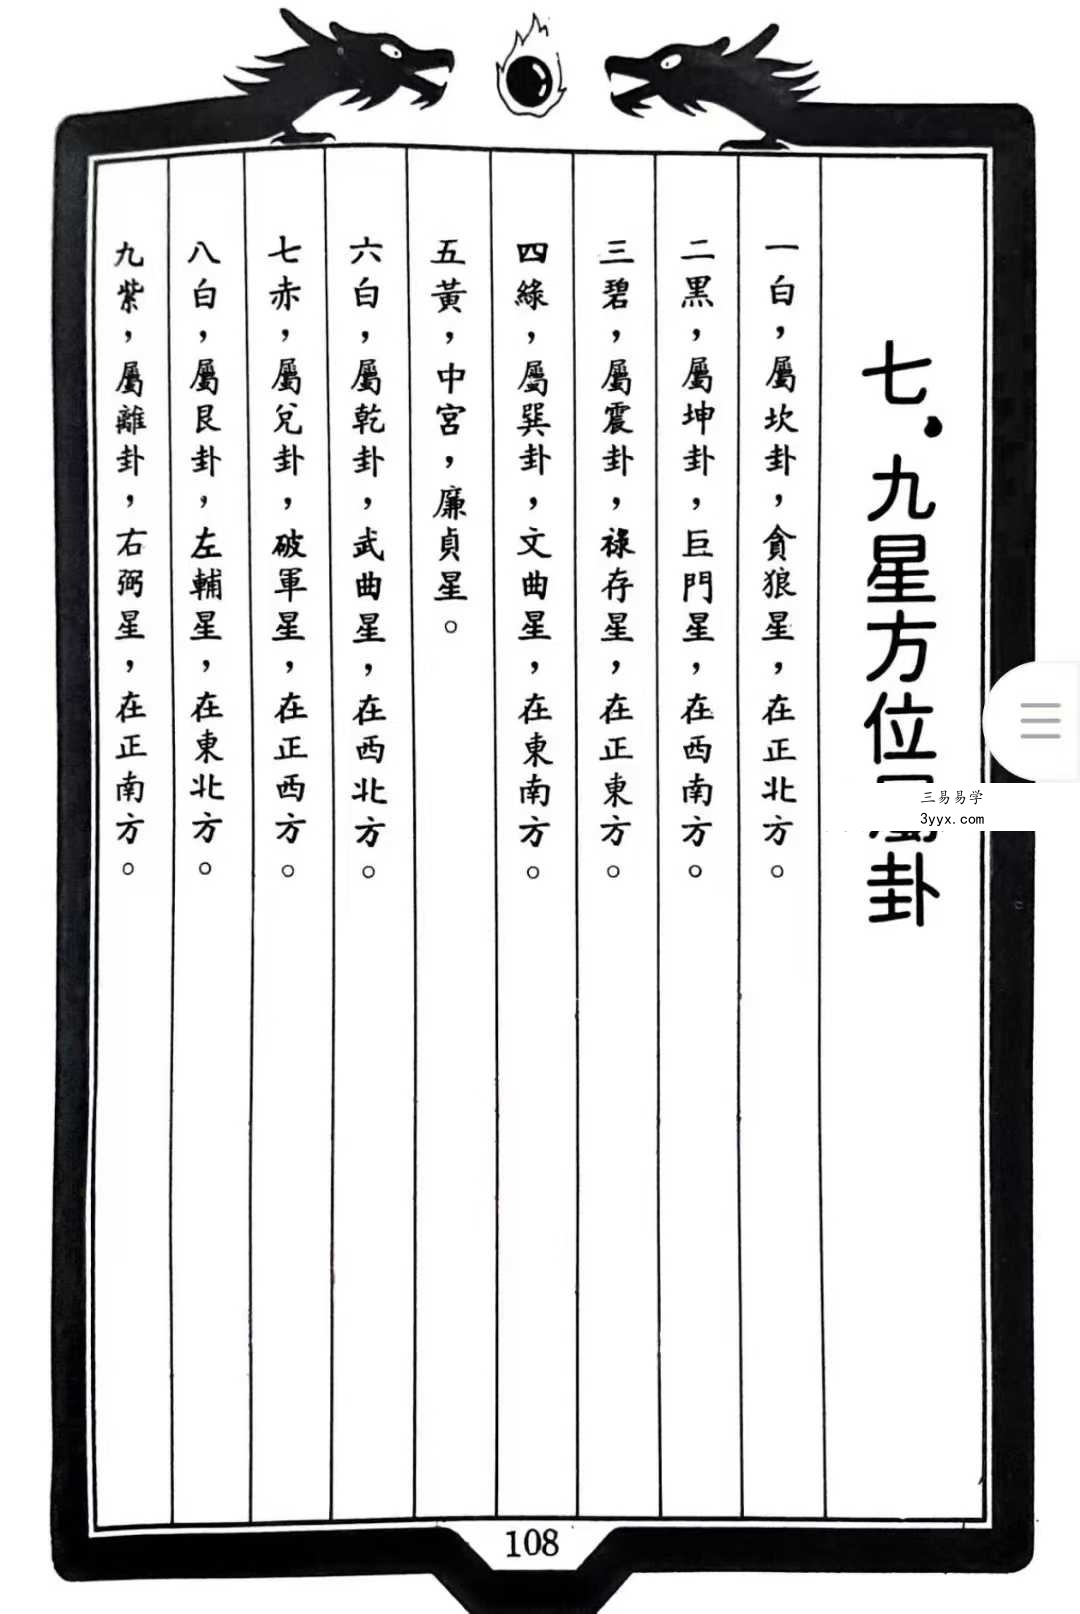 七.九星方位 屬卦
一白，屬坎卦，貪狼星，在正北方。
二黑，屬坤卦，巨門星，在西南方。
三碧，屬震卦，祿存星，在正東方。
四綠，屬巽卦，文曲星，在東南方。
五黃，中宮，廉貞星。
六白，屬乾卦，武曲星，在西北方。
七赤，屬兌卦，破軍星，在正西方。
八白，屬艮卦，左輔星，在東北方。
九紫，屬離卦，右弼星，在正南方。
三易易学
3yyx.com
108